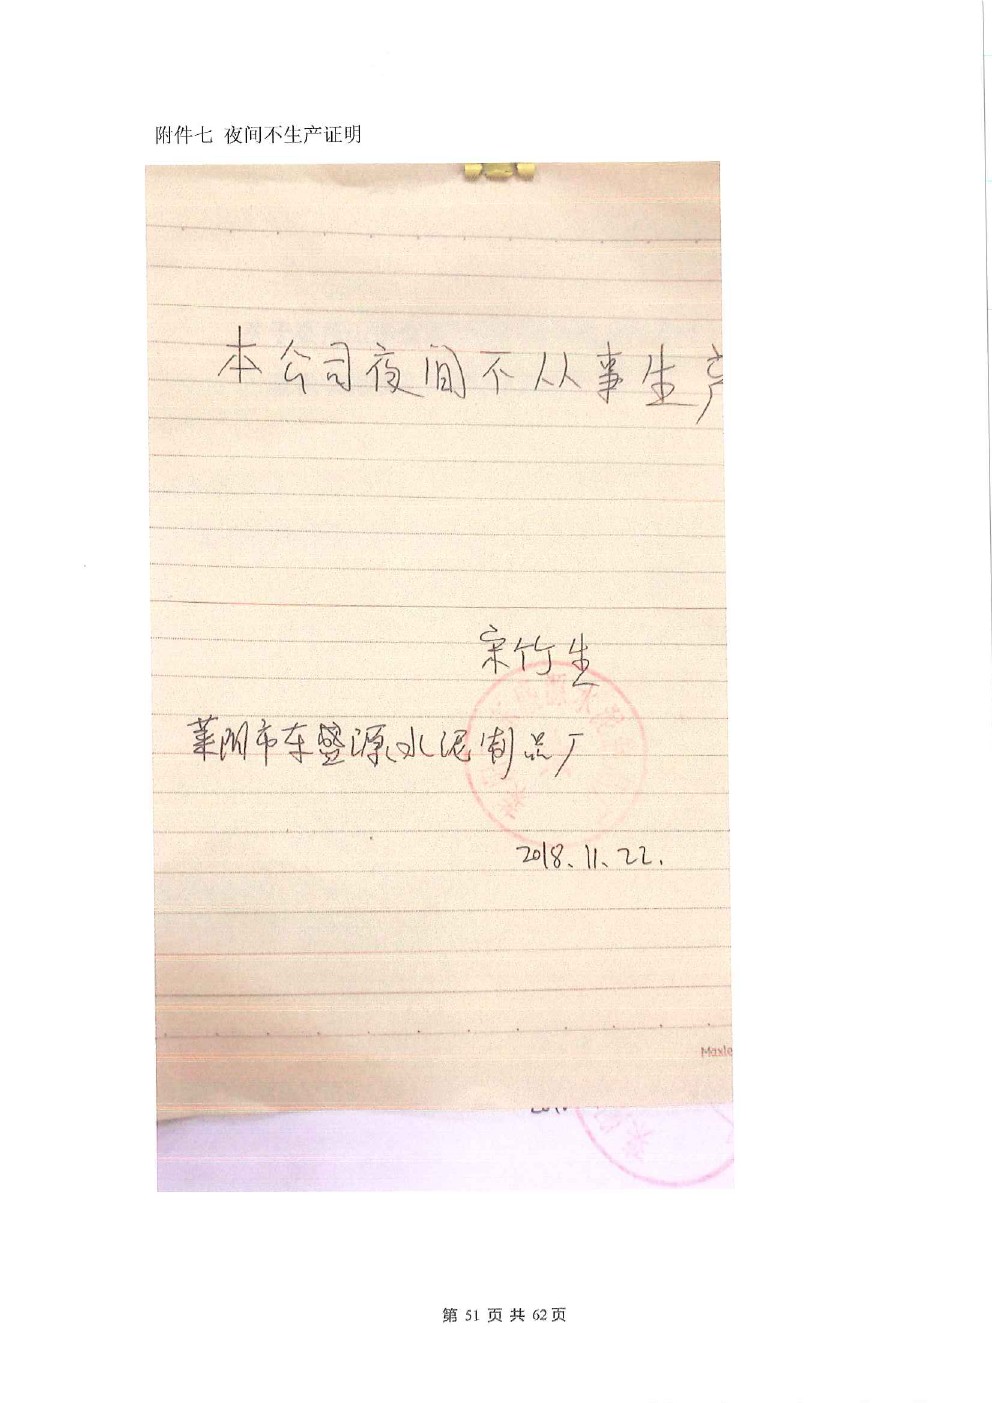 附件七 夜间不生产证明
本公司夜间不从事生产
宋竹生
莱阳市东盛源水泥制品厂
2018.11.22.
Maxle
第 51 页 共 62 页